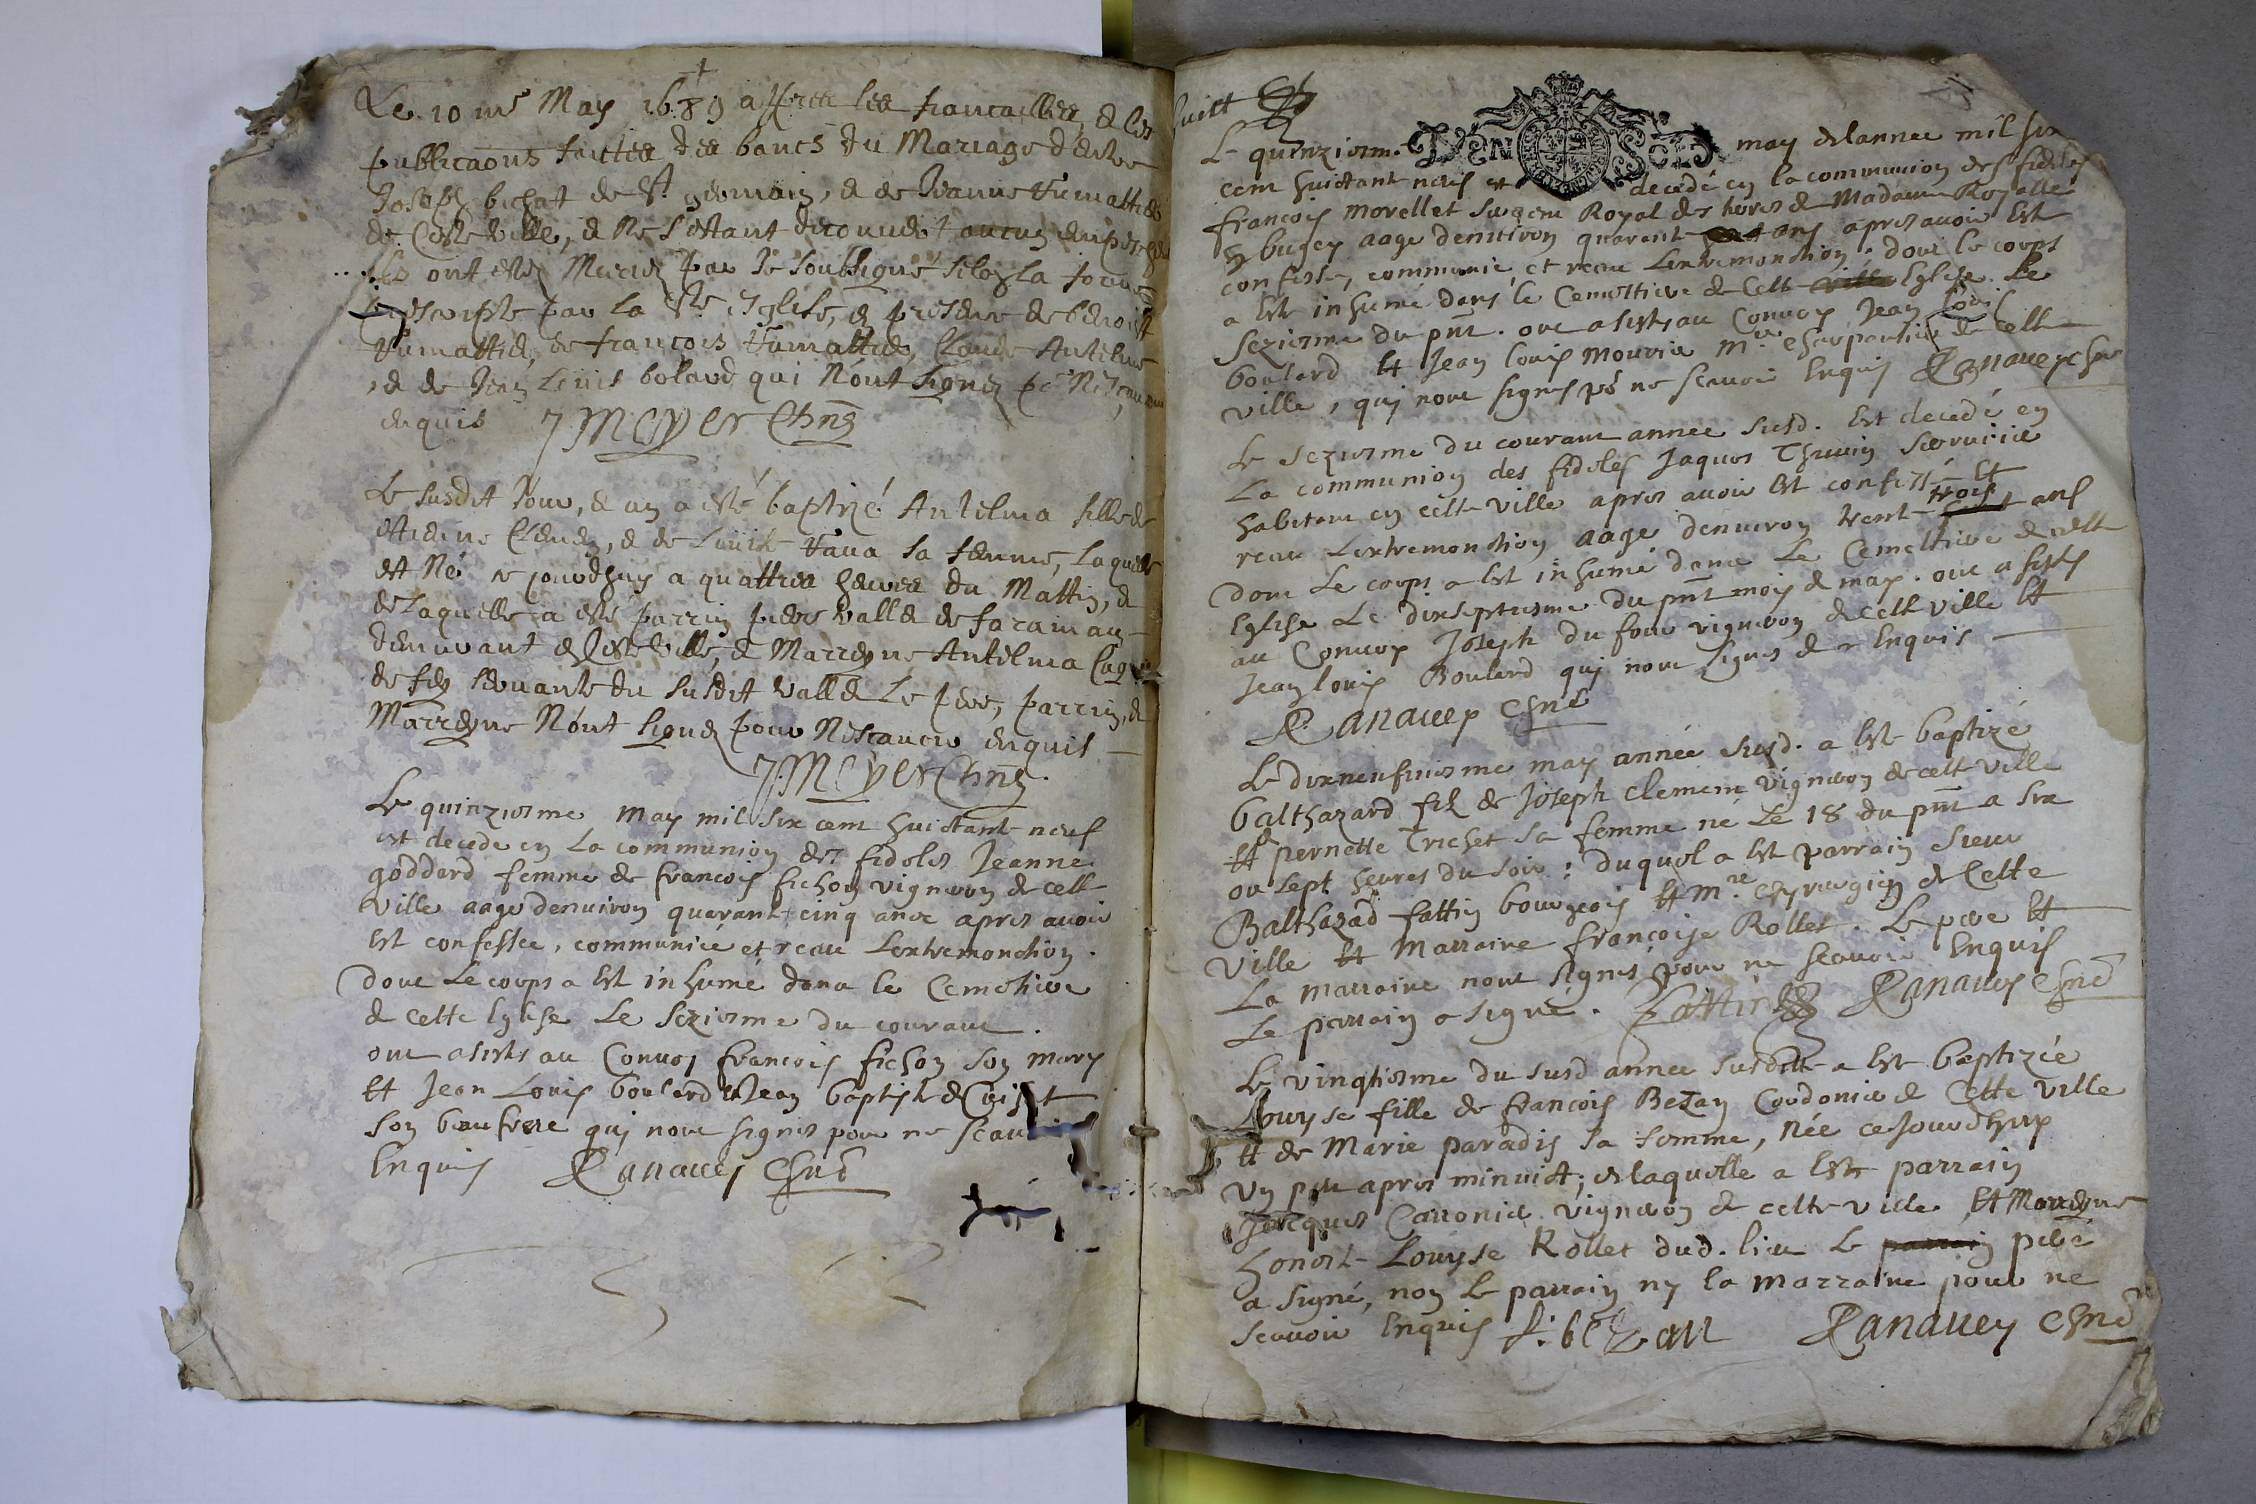 Le 10 me May 1689 apres les fiancailles, & les
publicaons faittes des bancs du Mariage d'entre
Joseph bichat de St. germain, & de Jeanne
de Ceste ville, & ne s'estant decouvert aucun
ils ont estés Mariés par Je soubsigné selon la forme
prescripte par la ste Eglise, en presence de benoist
de françois Claude Antelme
& de Jean Louis bolard qui N'ont signés pr Ne sçavoir
enquis J Meyer Chne
Le susdit Jour, & an a esté baptizé Antelma fille de
estienne & de sa femme, laquelle
est Né ce jourdhuy a quattres heures du Mattin, &
de laquelle a esté parrin pierre vallet de
demeurant en Ceste ville, & Marreyne Antelma
servante du susdit vallet Le pere, parrin, &
Marreyne N'ont signés pour Ne scavoir enquis
J. Meyer Chne.
Le quinziesme may mil six cent huictante neuf
est decede en La communion des fideles Jeanne
goddard femme de francois fichon vigneron de cette
ville aage denuiron quarante cinq ans apres auoir
Esté confessee, communiée et receu Lextremonction.
dont Le corps a Esté inhumé dans le Cemetiere
de cette Eglise Le seziesme du courant.
ont asistés au Conuoy francois fichon son mary
Et Jean Louis boulard & Jean baptiste
son beaufrere qui nont signés pour ne scauoir
Enquis Ranauey Chne
huict
Le quinziesme DEN SOLS may de lannee mil six
cent huictante neuf est decedé en la communion des fideles
francois Morellet sergent Royal des terres de Madame Royalle
en bugey aage denuiron quarante ans apres auoir Esté
confessé, communié, et receu Lextremonction. dont le corps
a Esté inhumé dans le Cemettiere de Cette ville Eglise. Le
seziesme du pnt. ont asistés au Conuoy Jean Louis
boulard Et Jean Louis mouvié Mre Charpentier de cette
ville, qui nont signés pr ne scauoir Enquis Ranauey Chne
Le seziesme du courant annee susd. Est decedé en
La communion des fideles Jaques Thiuin
habitant en cette ville apres auoir Esté confessé Et
receu Lextremonction aagé denuiron trente trois ans
dont Le corps a Esté inhumé dans Le Cemettiere de cette
Eglise Le dixseptiesme du pnt mois de may. ont asistés
au Conuoy Joseph du four vigneron de cette ville Et
Jean Louis Boulard qui nont signés de ce Enquis
Ranauey Chne
Le dixneufuiesme may année susd. a Esté baptizé
balthazard fils de Joseph clement vigneron de cette ville
Et pernette Trichet sa femme né Le 18 du pnt a six
ou sept heures du soir: duquel a Esté parrain sieur
Balthazad fattin bourgeois Et mre chyrurgien de Cette
ville Et marraine françoise Rollet. Le pere Et
La marraine nont signés pour ne scauoir Enquis
Le parrain a signé. Fattin Ranauey Chne
Le vingtiesme du susd annee susditte a Esté baptizée
Louyse fille de francois Bezan Cordonier de Cette ville
Et de Marie paradis sa femme, née ce Jourdhuy
Un peu apres minuict; de laquelle a Esté parrain
Jacques Carronier vigneron de cette ville, Et Marreyne
honeste Louyse Rollet dud. lieu Le parrain pere
a signé, non Le parrain ny la marraine pour ne
scauoir Enquis f: beZan Ranauey Chne